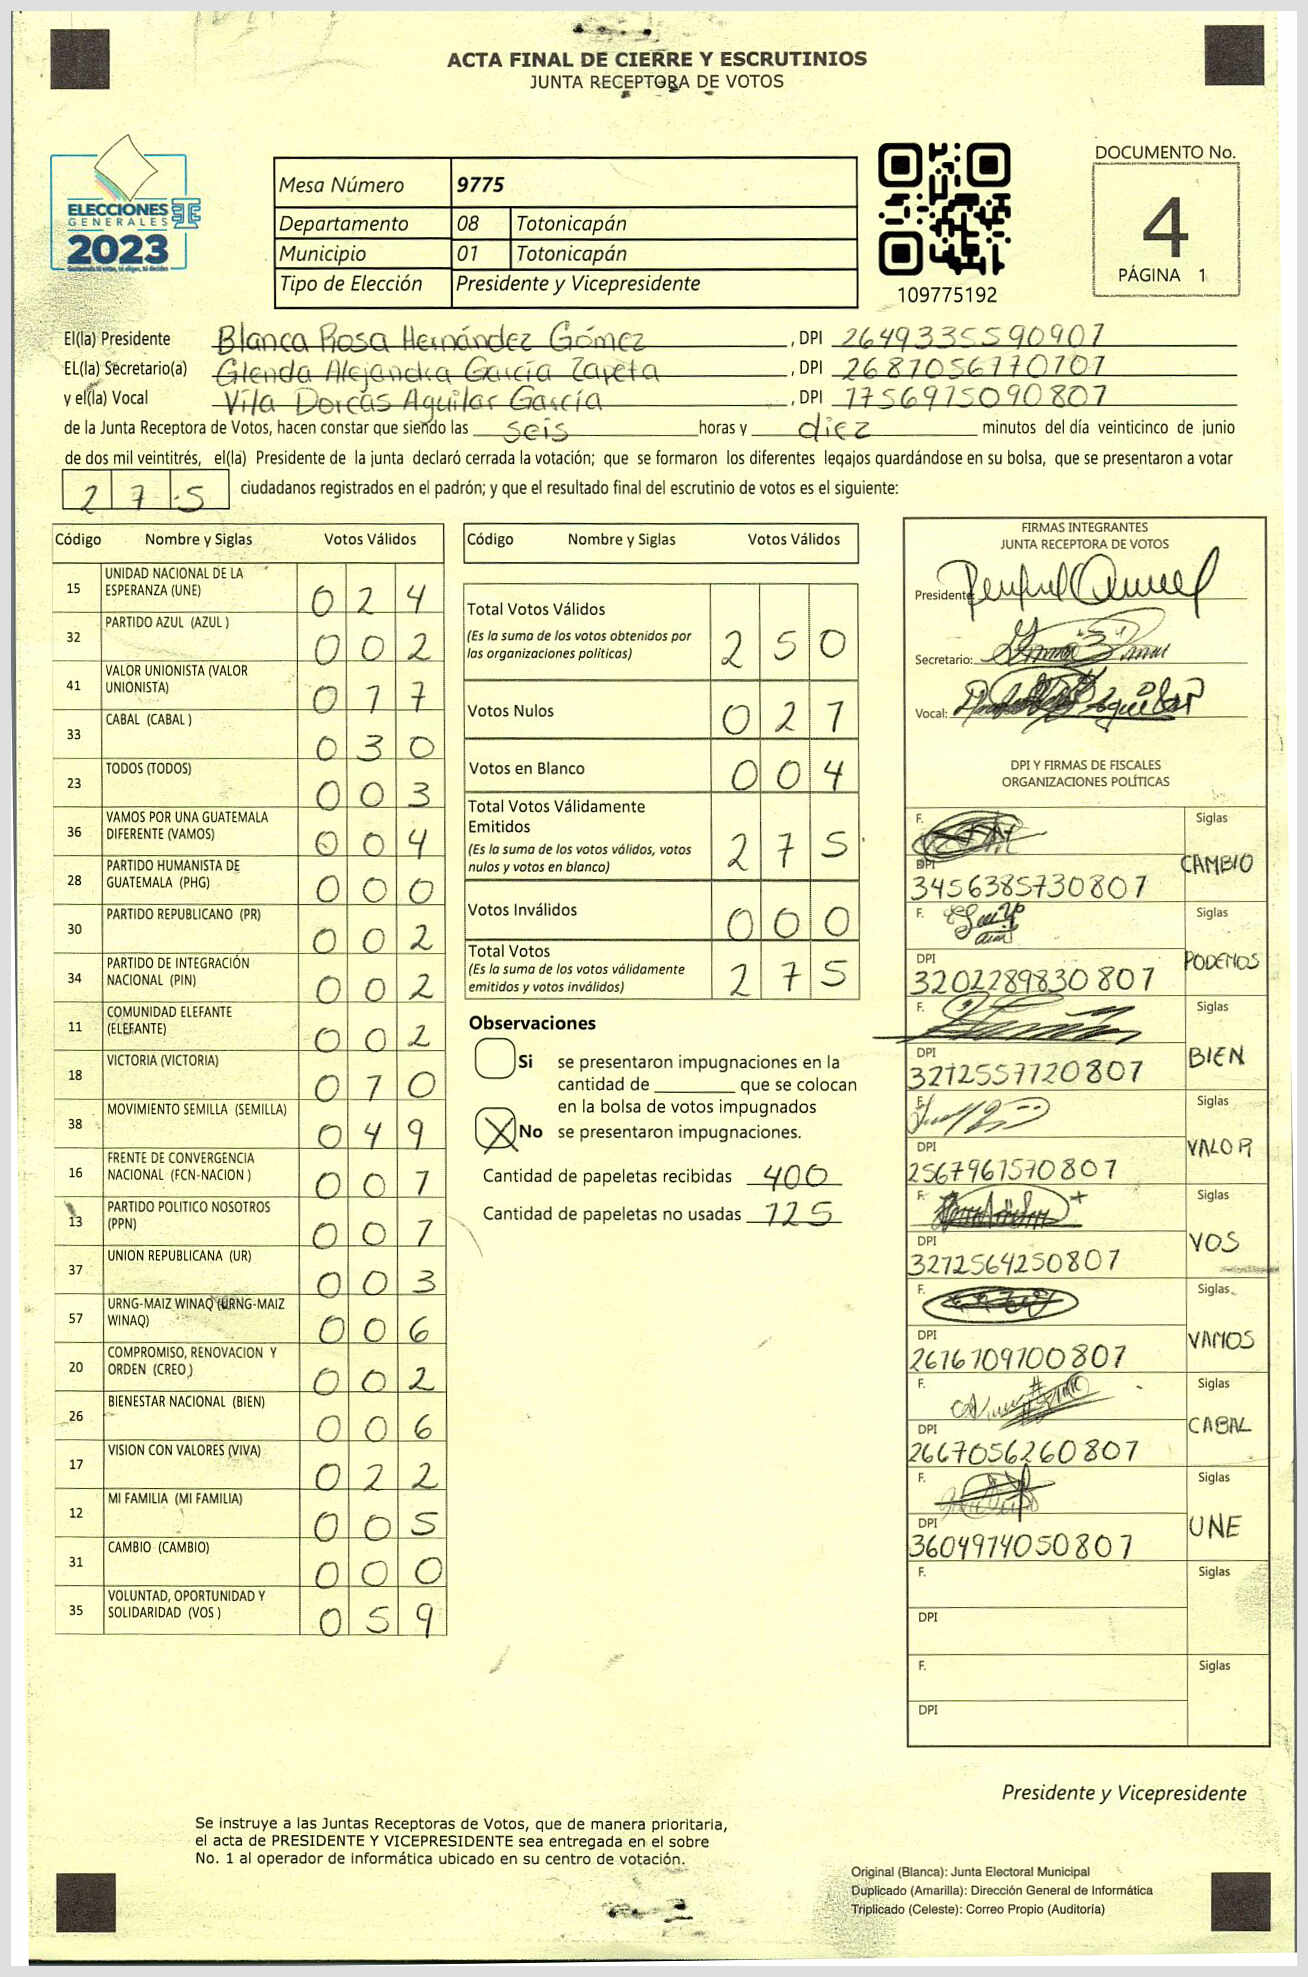 ACTA FINAL DE CIERRE Y ESCRUTINIOS
JUNTA RECEPTORA DE VOTOS
ELECCIONES
GENERALES
2023
Mesa Número 9775
Departamento 08 Totonicapán
Municipio 01 Totonicapán
Tipo de Elección Presidente y Vicepresidente
109775192
DOCUMENTO No.
4
PÁGINA 1
El(la) Presidente Blanca Rosa Hernández Gómez, DPI 2649335590901
EL(la) Secretario(a) Glenda Alejandra García Zapeta, DPI
y el(la) Vocal Vila Dorcas Aguilar García, DPI 1756915090801
de la Junta Receptora de Votos, hacen constar que siendo las seis horas y diez minutos del día veinticinco de junio
de dos mil veintitrés, el(la) Presidente de la junta declaró cerrada la votación; que se formaron los diferentes legajos guardándose en su bolsa, que se presentaron a votar
275 ciudadanos registrados en el padrón; y que el resultado final del escrutinio de votos es el siguiente:
Código Nombre y Siglas Votos Válidos
15 UNIDAD NACIONAL DE LA ESPERANZA (UNE) 024
32 PARTIDO AZUL (AZUL ) 002
41 VALOR UNIONISTA (VALOR UNIONISTA) 017
33 CABAL (CABAL ) 030
23 TODOS (TODOS) 003
36 VAMOS POR UNA GUATEMALA DIFERENTE (VAMOS) 004
28 PARTIDO HUMANISTA DE GUATEMALA (PHG) 000
30 PARTIDO REPUBLICANO (PR) 002
34 PARTIDO DE INTEGRACIÓN NACIONAL (PIN) 002
11 COMUNIDAD ELEFANTE (ELEFANTE) 002
18 VICTORIA (VICTORIA) 010
38 MOVIMIENTO SEMILLA (SEMILLA) 049
16 FRENTE DE CONVERGENCIA NACIONAL (FCN-NACION ) 001
13 PARTIDO POLITICO NOSOTROS (PPN) 001
37 UNION REPUBLICANA (UR) 003
57 URNG-MAIZ WINAQ (URNG-MAIZ WINAQ) 006
20 COMPROMISO, RENOVACION Y ORDEN (CREO ) 002
26 BIENESTAR NACIONAL (BIEN) 006
17 VISION CON VALORES (VIVA) 022
12 MI FAMILIA (MI FAMILIA) 005
31 CAMBIO (CAMBIO) 000
35 VOLUNTAD, OPORTUNIDAD Y SOLIDARIDAD (VOS ) 059
Código Nombre y Siglas Votos Válidos
Total Votos Válidos
(Es la suma de los votos obtenidos por las organizaciones políticas) 250
Votos Nulos 021
Votos en Blanco 004
Total Votos Válidamente Emitidos
(Es la suma de los votos válidos, votos nulos y votos en blanco) 275
Votos Inválidos 000
Total Votos
(Es la suma de los votos válidamente emitidos y votos inválidos) 275
Observaciones
Si se presentaron impugnaciones en la
cantidad de ________ que se colocan
en la bolsa de votos impugnados
X No se presentaron impugnaciones.
Cantidad de papeletas recibidas 400
Cantidad de papeletas no usadas 125
FIRMAS INTEGRANTES
JUNTA RECEPTORA DE VOTOS
Presidente:
Secretario:
Vocal:
DPI Y FIRMAS DE FISCALES
ORGANIZACIONES POLÍTICAS
F. Siglas
DPI 3456385730801 CAMBIO
F. Siglas
DPI 3202289830801 PODEMOS
F. Siglas
DPI 3212557120801 BIEN
F. Siglas
DPI 2567961570801 VALOR
F. Siglas
DPI 3212564250801 VOS
F. Siglas
DPI 2616109100801 VAMOS
F. Siglas
DPI 2667056260801 CABAL
F. Siglas
DPI 3604914050801 UNE
F. Siglas
DPI
F. Siglas
DPI
Presidente y Vicepresidente
Se instruye a las Juntas Receptoras de Votos, que de manera prioritaria,
el acta de PRESIDENTE Y VICEPRESIDENTE sea entregada en el sobre
No. 1 al operador de informática ubicado en su centro de votación.
Original (Blanca): Junta Electoral Municipal
Duplicado (Amarilla): Dirección General de Informática
Triplicado (Celeste): Correo Propio (Auditoría)